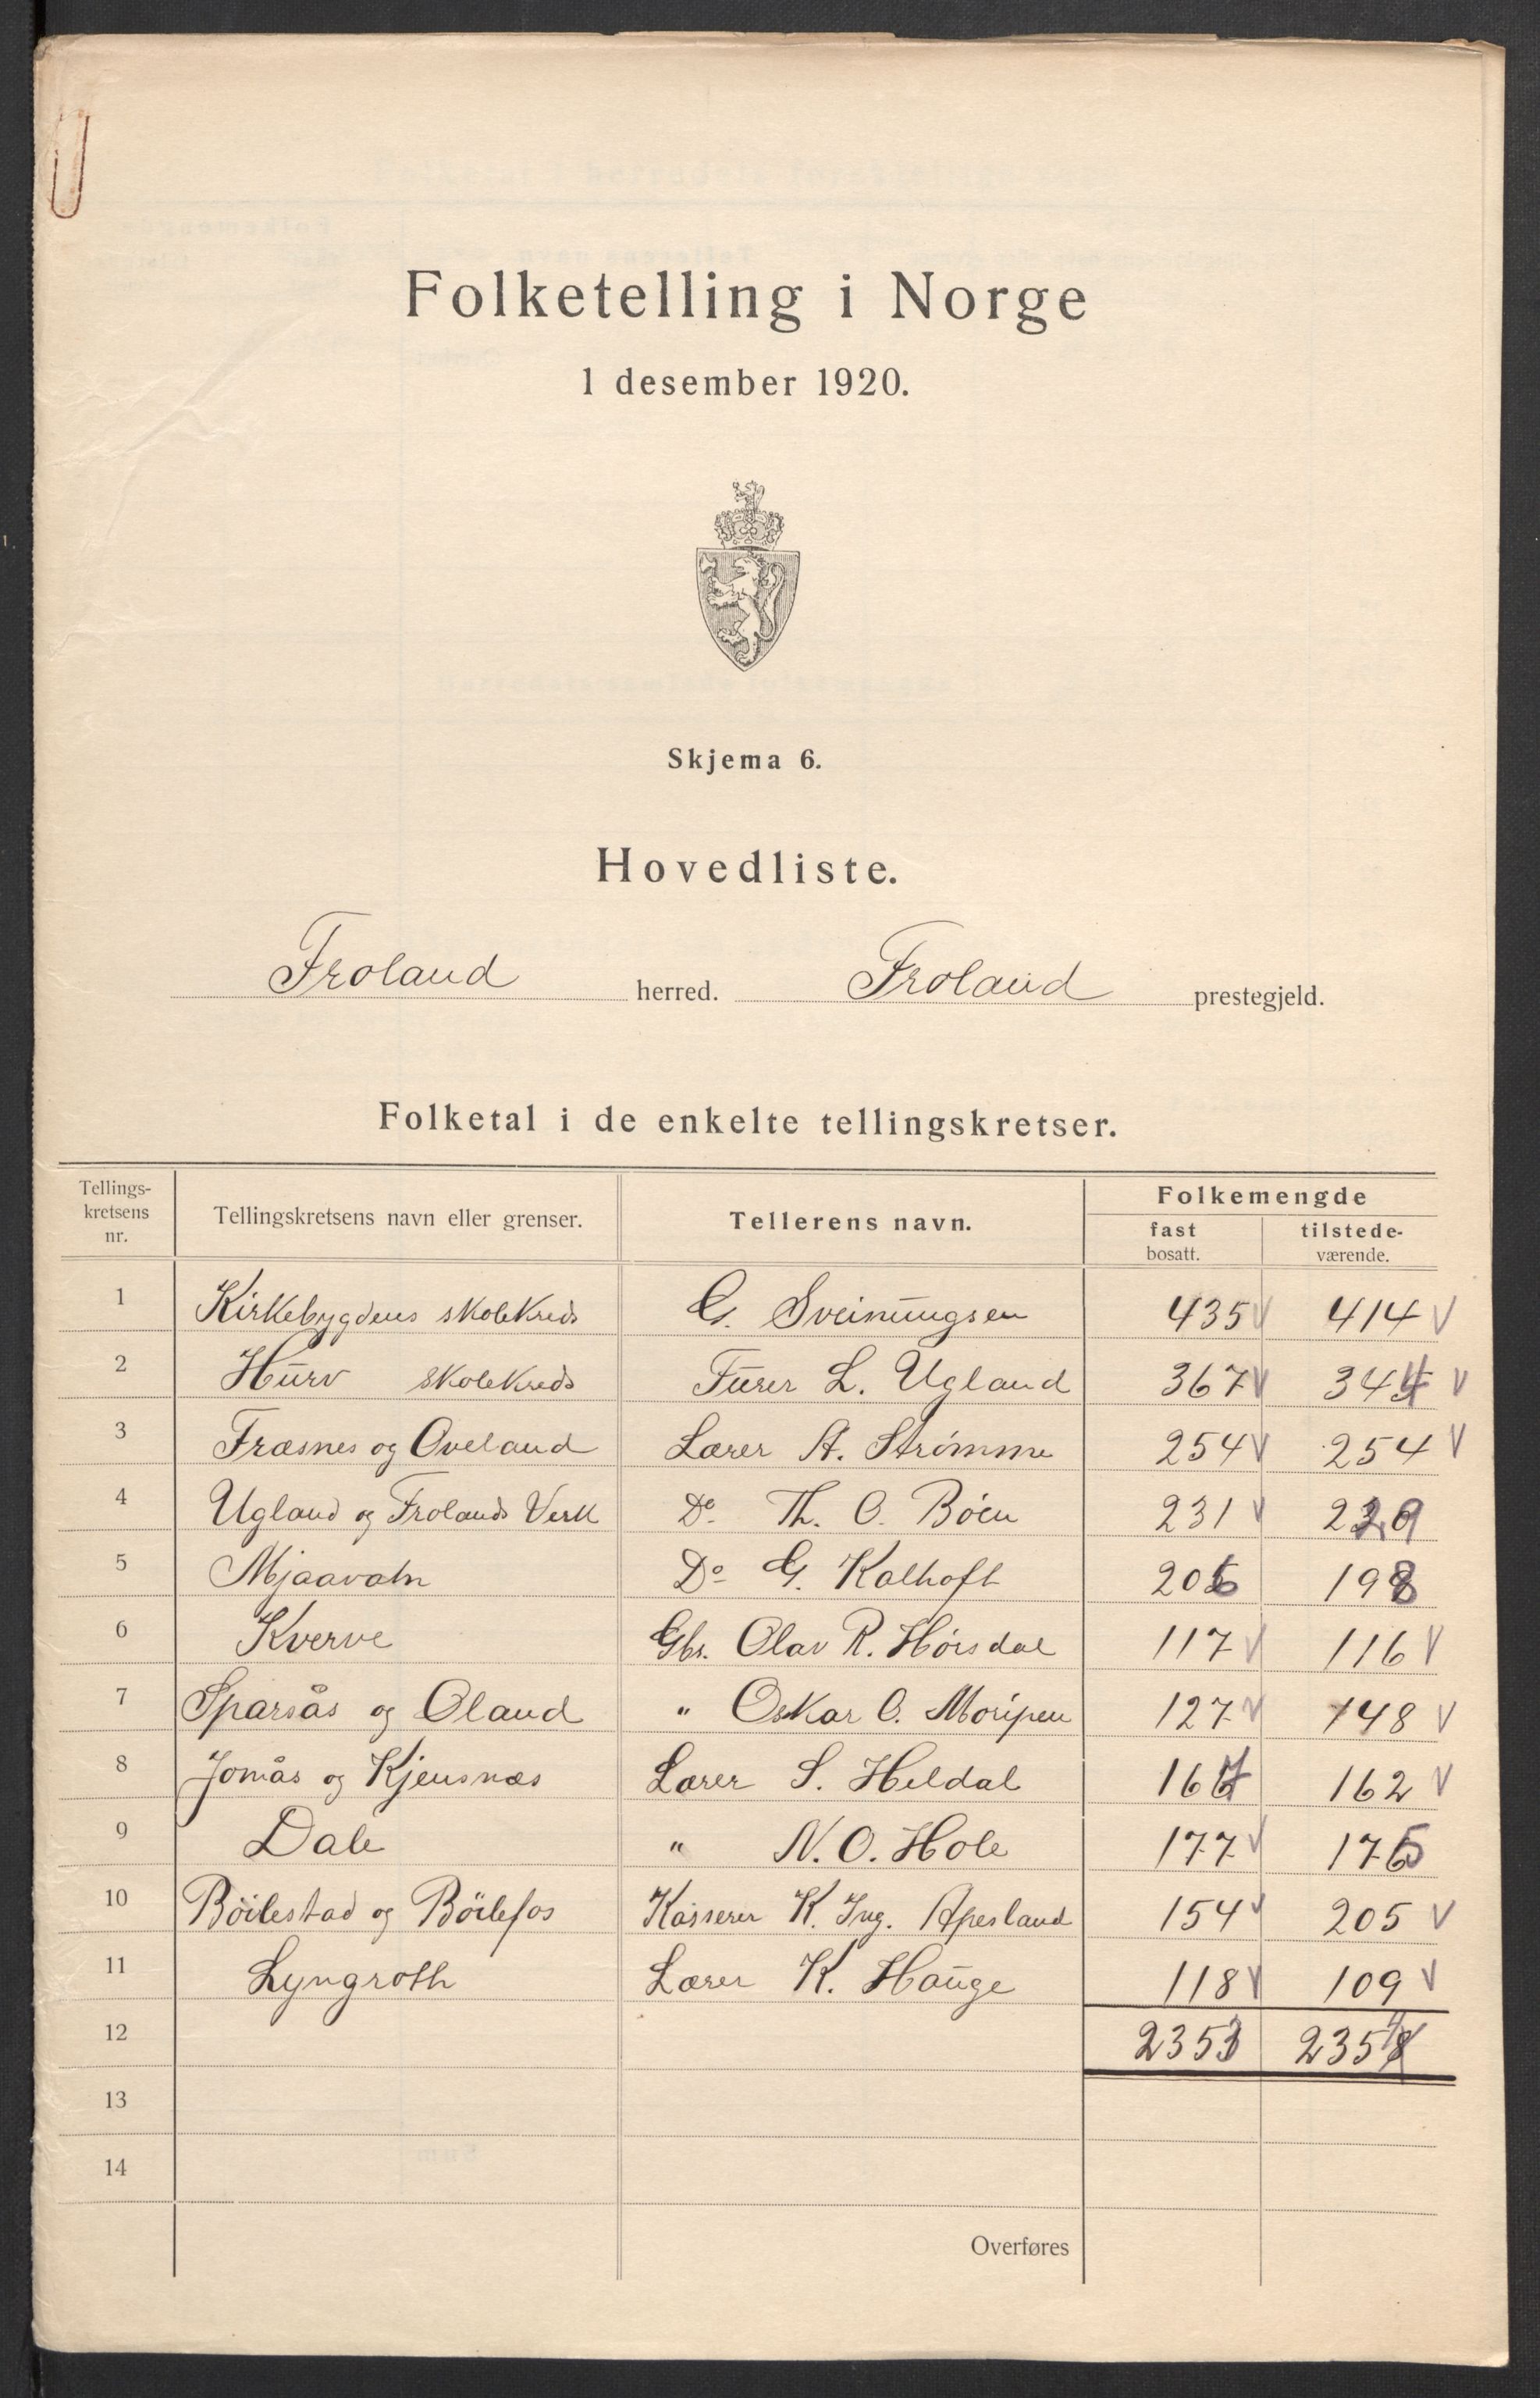 Folketelling i Norge
1 desember 1920.
Skjema 6.
Hovedliste.
Froland herred. Froland prestegjeld.
Folketal i de enkelte tellingskretser.
Tellings-kretsens nr. Tellingskretsens navn eller grenser. Tellerens navn. Folkemengde
fast bosatt. tilstede-værende.
1 Kirkebygdens skolekreds G. Sveinungsen 435 414
2 Hurv skolekreds Furer L. Ugland 367 344
3 Fræsnes og Oveland Lærer A. Strømme 254 254
4 Ugland og Frolands Verk Do. Th. O. Böen 231 229
5 Mjaavatn Do G. Kalhoft 206 198
6 Kverve Gbr. Olav R. Hörsdal 117 116
7 Sparsås og Oland " Oskar O. Moripen 127 148
8 Jomås og Kjensnæs Lærer S. Heldal 167 162
9 Dale " N. O. Hole 177 175
10 Böilestad og Böilefos Kasserer K. Ing. Apesland 154 205
11 Lyngroth Lærer K. Hauge 118 109
12 2353 2354
13
14
Overføres